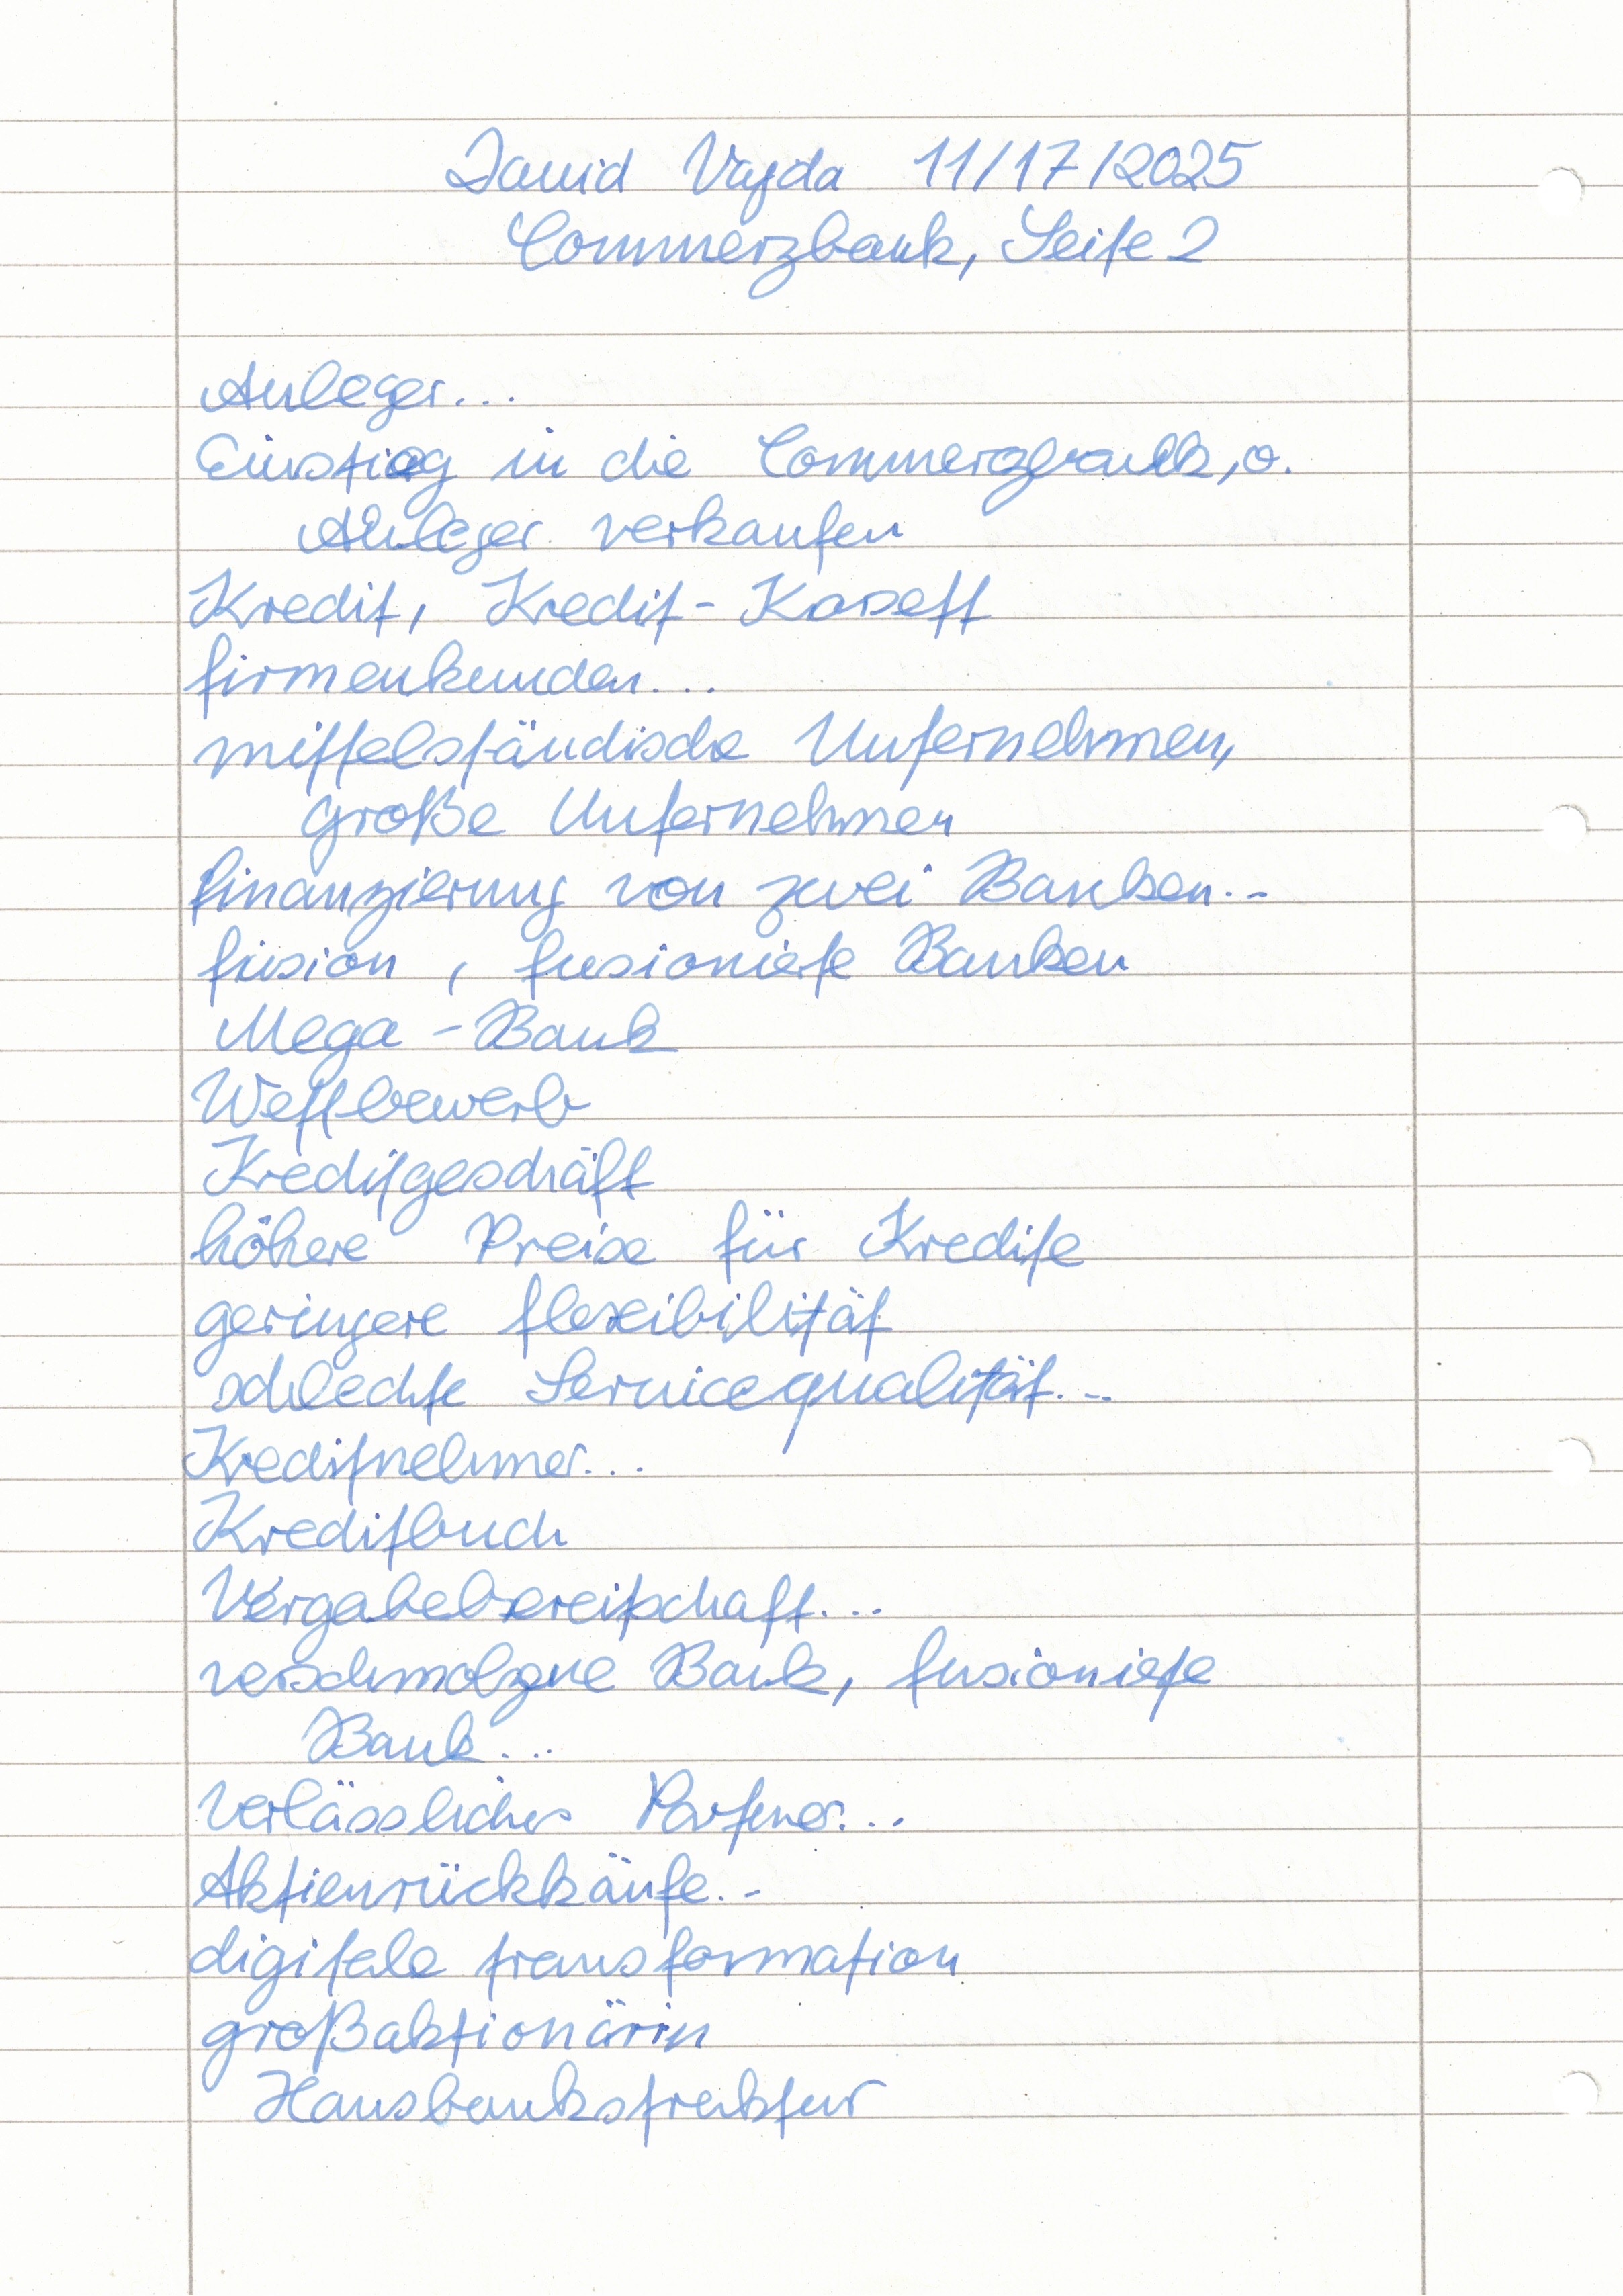 David Vajda 11/17/2025
Commerzbank, Seite 2
Anleger...
Einstieg in die Commerzbank, o.
Anleger verkaufen
Kredit, Kredit-Korsett
firmenkunden...
mittelständische Unternehmen,
große Unternehmen
finanzierung von zwei Banken...
fusion, fusionierte Banken
Mega-Bank
Wettbewerb
Kreditgeschäft
höhere Preise für Kredite
geringere flexibilität
schlechte Servicequalität...
Kreditnehmer...
Kreditbuch
Vergabebereitschaft...
verschmolzne Bank, fusioniete
Bank...
Verlässlicher Partner...
Aktienrückkäufe...
digitale transformation
großaktionärin
Hausbankstruktur